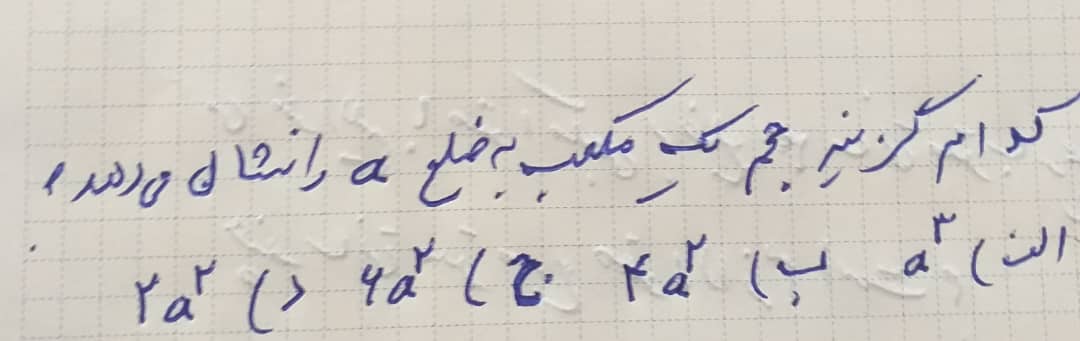 کدام گزینه حجم یک مکعب به ضلع a را نشان می‌دهد؟
الف) a³ ب) ۴a² ج) ۶a² د) ۲a²